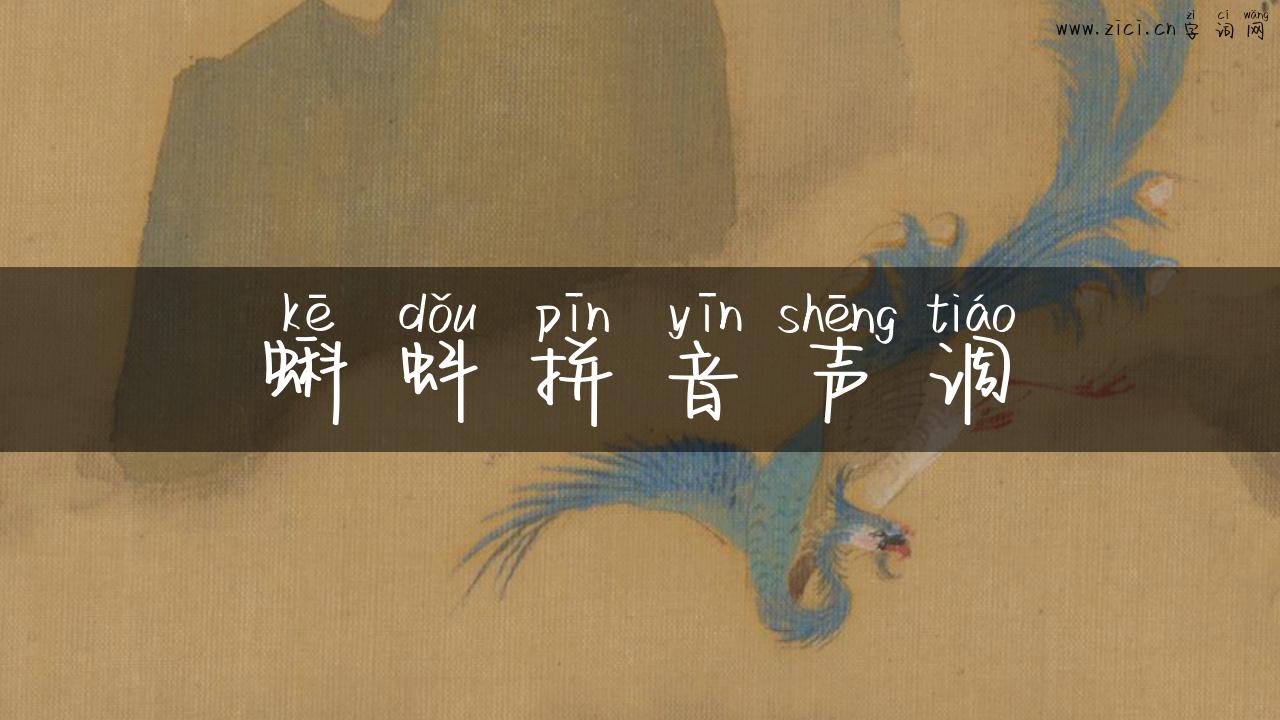 zì cí wǎng
www.zici.cn 字词网
kē dǒu pīn yīn shēng tiáo
蝌蚪拼音声调